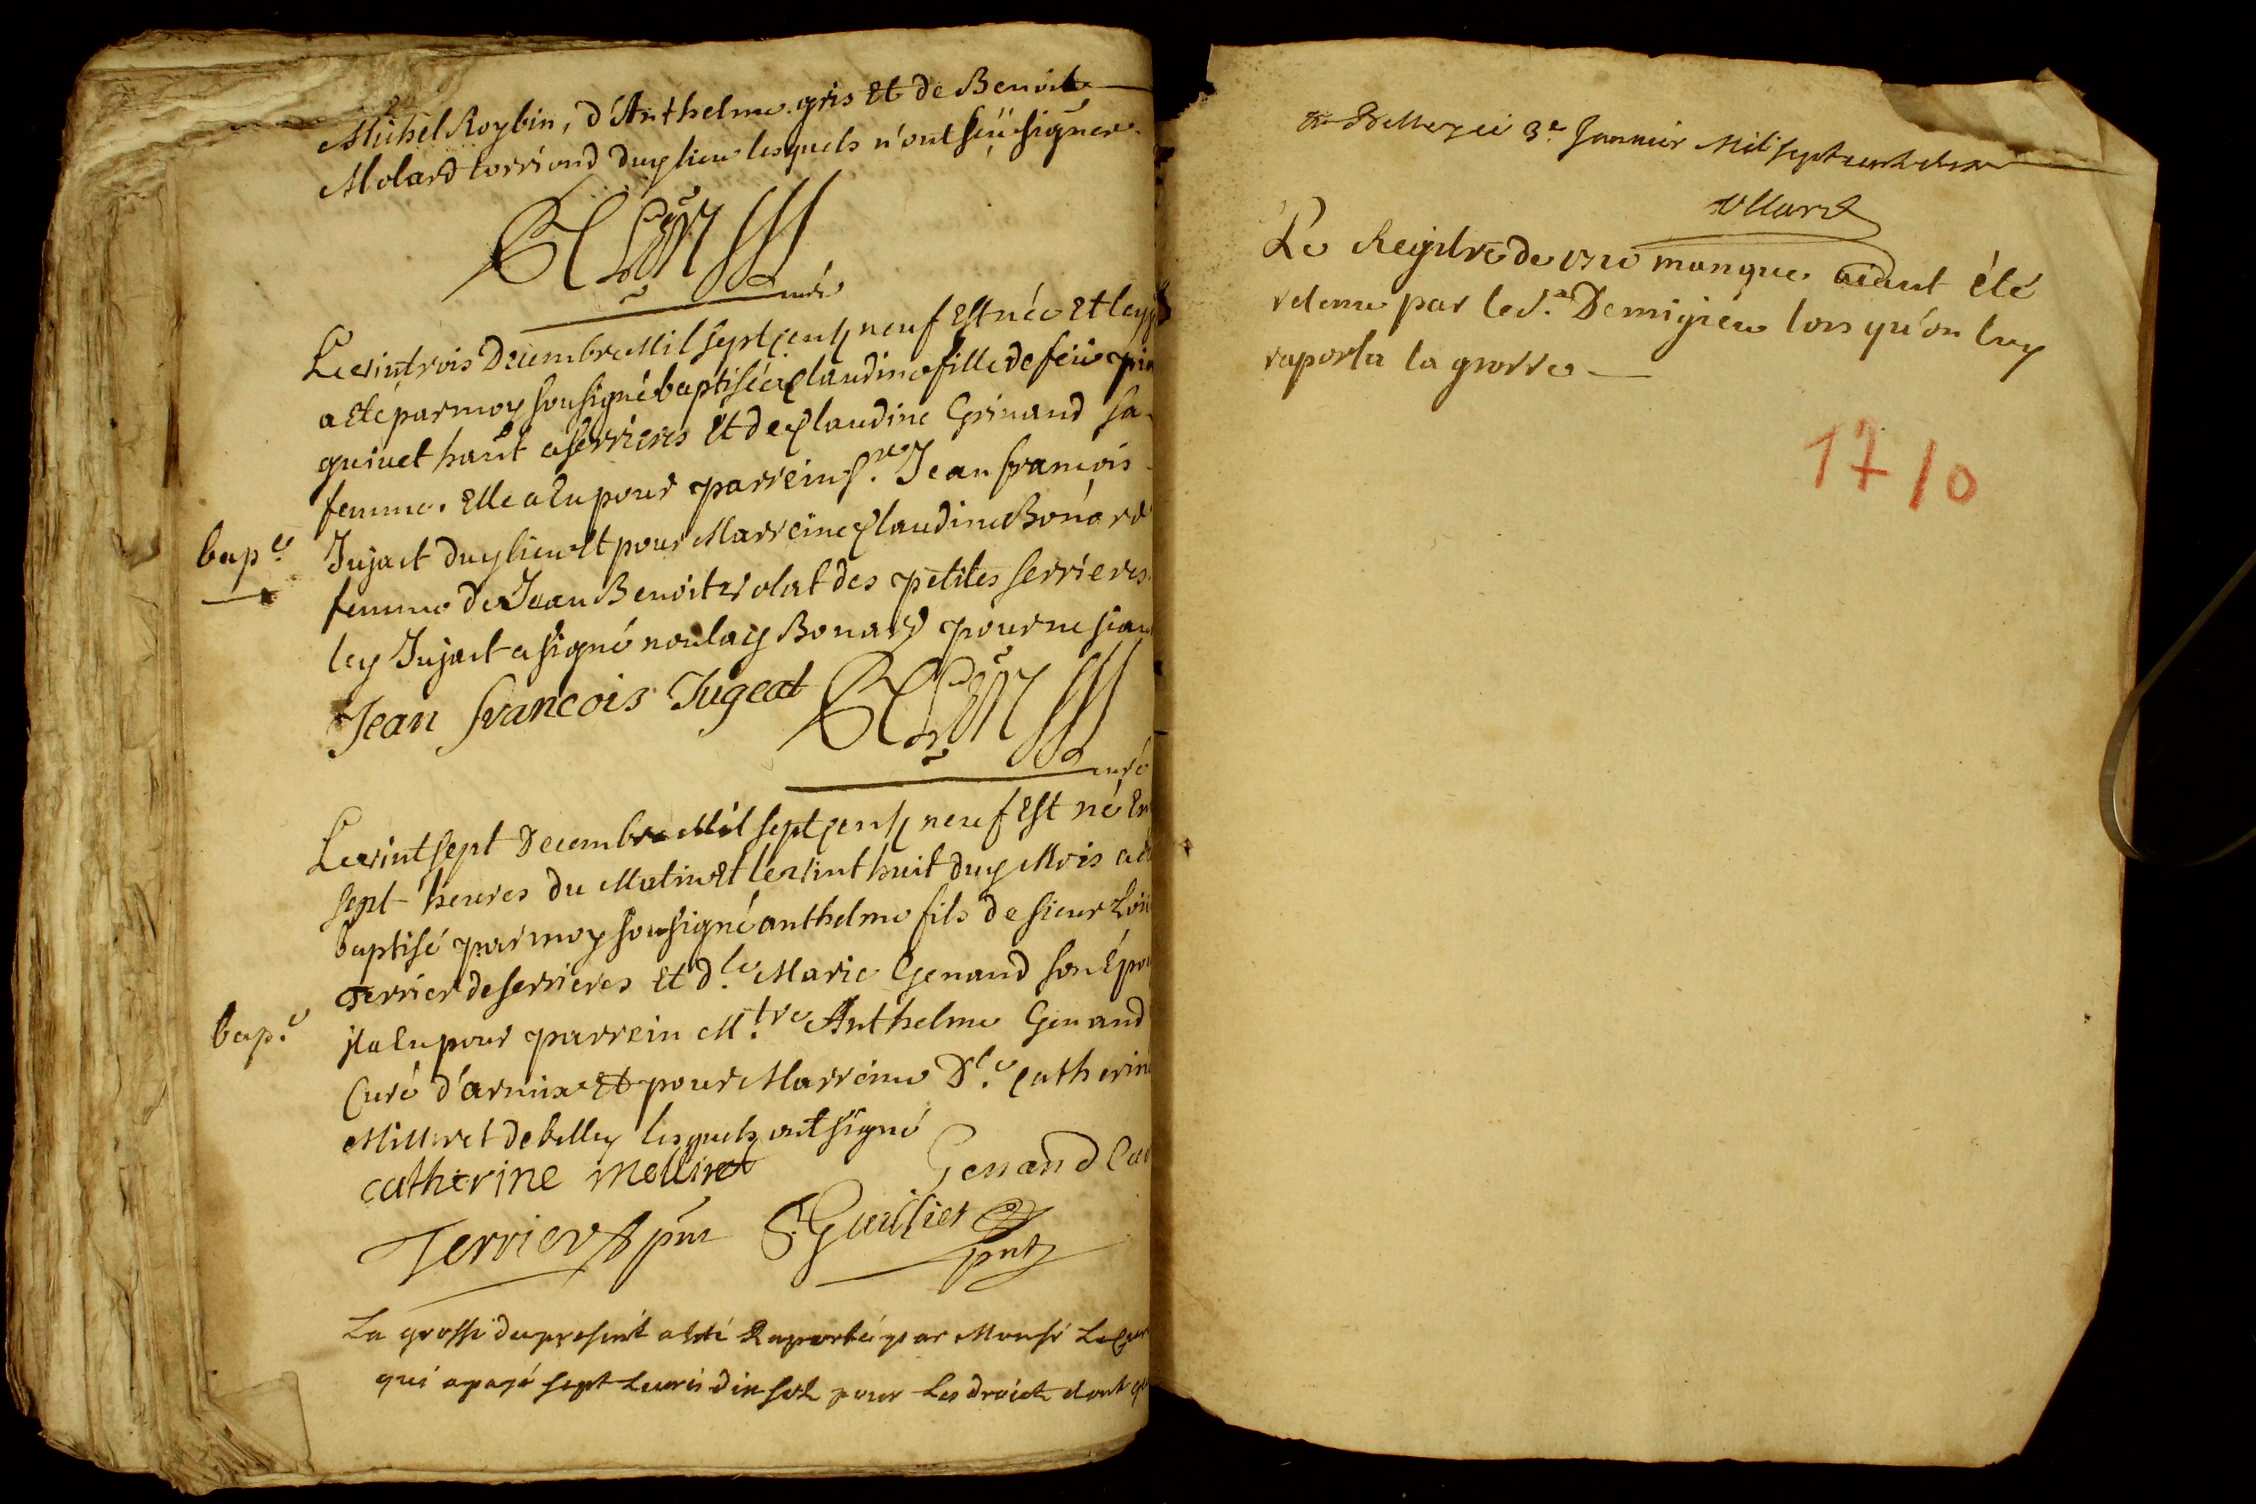 Michel Roybin, d'Anthelme gris Et de Benoite
Molard torriond duy lieu lesquels n'ont sceü signer.
curé
Le vint trois Decembre Mil sept cents neuf Est née Et le
a Eté par moy sousigné baptisée Claudine fille de feü
guinet haut a serrieres Et de Claudine Grinand sa
femme. Elle a Eu pour parrein sr. Jean francois
bap.e
Jujact duy lieu Et pour Marreine Claudine Bonard
femme de Jean Benoit Violat des petites serrieres.
ley Jujact a signé non lay Bonard pour ne
Jean francois Jugeat
curé
Le vint sept Decembre Mil sept cents neuf Est né
sept heures du Matin Et le vint huit duy Mois a
baptisé par moy sousigné anthelme fils de sieur
Terrier de serrieres Et d.le Marie Genand son
bap.e
il a Eu pour parrein M.tre Anthelme Genand
Curé d'armix Et pour Marreine D.le Catherine
Milleret de belley lesquels ont signé
catherine melliret
Genand
Terrier pnt S. Gaillier pnt
La grosse du present a été Raportéé par Monsr Le Curé
qui a payé sept Livres dix sols pour Les droicts dont
A Belley ce 3e Janvier Mil sept cent dix
Le Registre de 1710 manque aïant été
retenu par le sr. Demigieu lors qu'on luy
raporta la grosse
1710